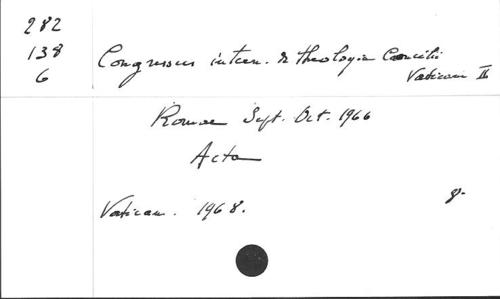 282
138
6
Congressus intern. de theologia Concilii
Vaticani II
Romae Sept. Oct. 1966
Acta
Vatican. 1968.
8-